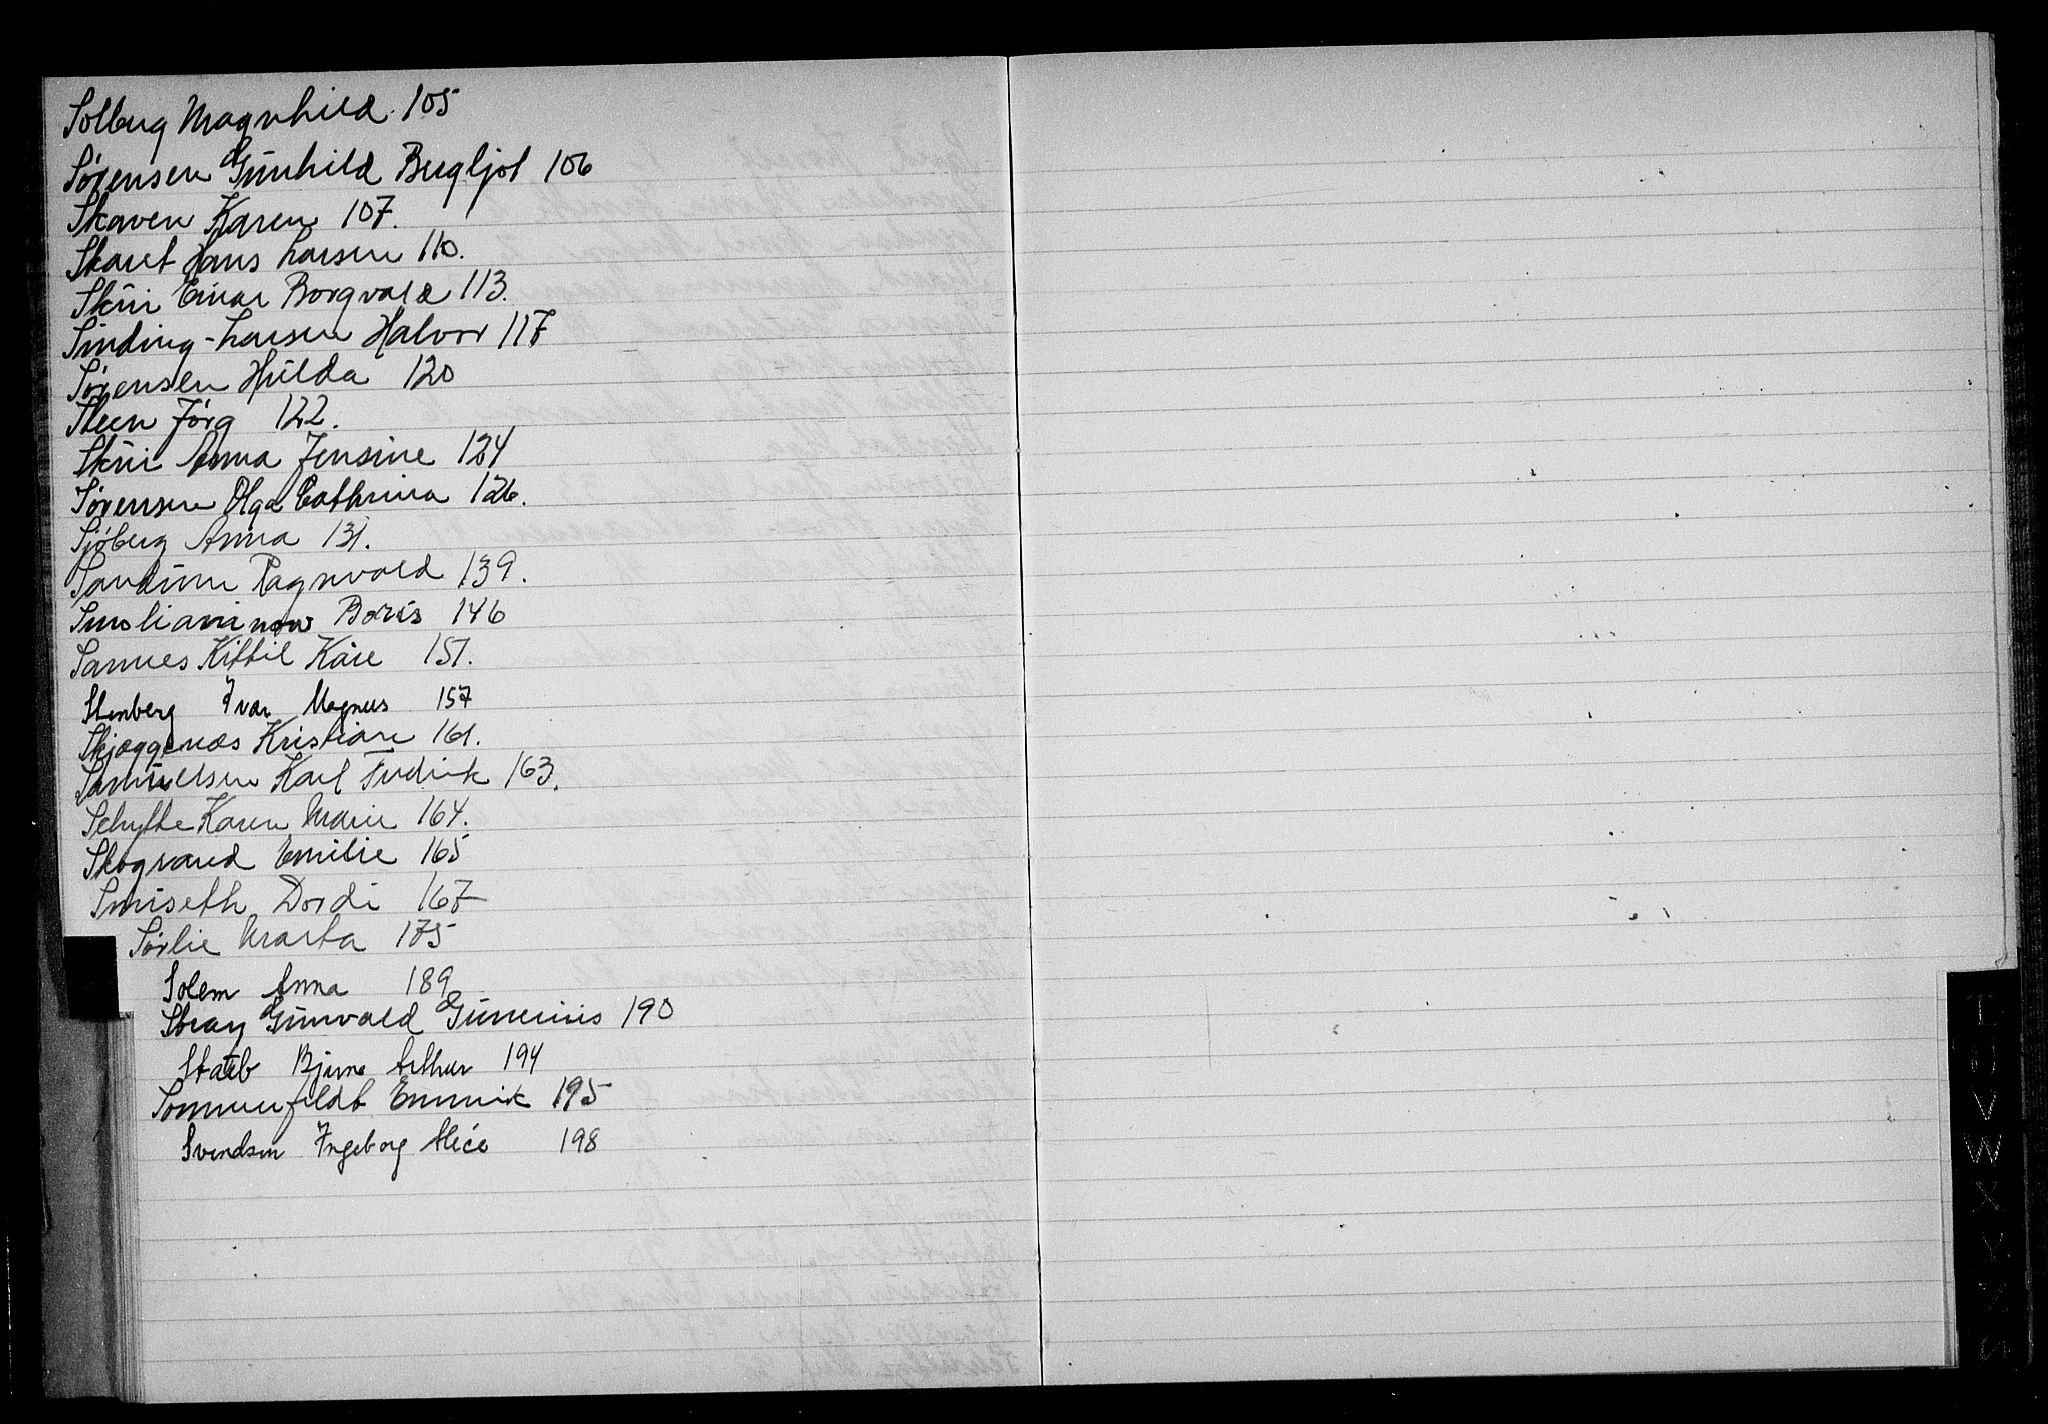 Solberg Magnhild. 105
Sørensen Gunhild Bergljot 106
Skaven Karen 107.
Skaret Hans Larsen 110.
Skui Einar Borgvald 113.
Sinding-Larsen Halvor 117
Sørensen Hulda 120
Steen Jørg 122.
Skui Anna Jensine 124
Sørensen Olga Cathrina 126.
Sjöberg Anna 131.
Sandum Ragnvald 139.
Smolianinow Boris 146
Sannes Kittil Kåre 151.
Stenberg Ivar Magnus 157
Skjæggenæs Kristiane 161.
Samuelsen Karl Fredrik 163.
Schytte Karen Marie 164.
Skogrand Emilie 165
Smiseth Dordi 167
Sørlie Marta 175
Solem Anna 189
Stray Gunvald Gunerius 190
Staib Bjørne Arthur 194
Sommerfeldt Emmerik 195
Svendsen Ingeborg Alice 198
T
U
V
W
X
Y